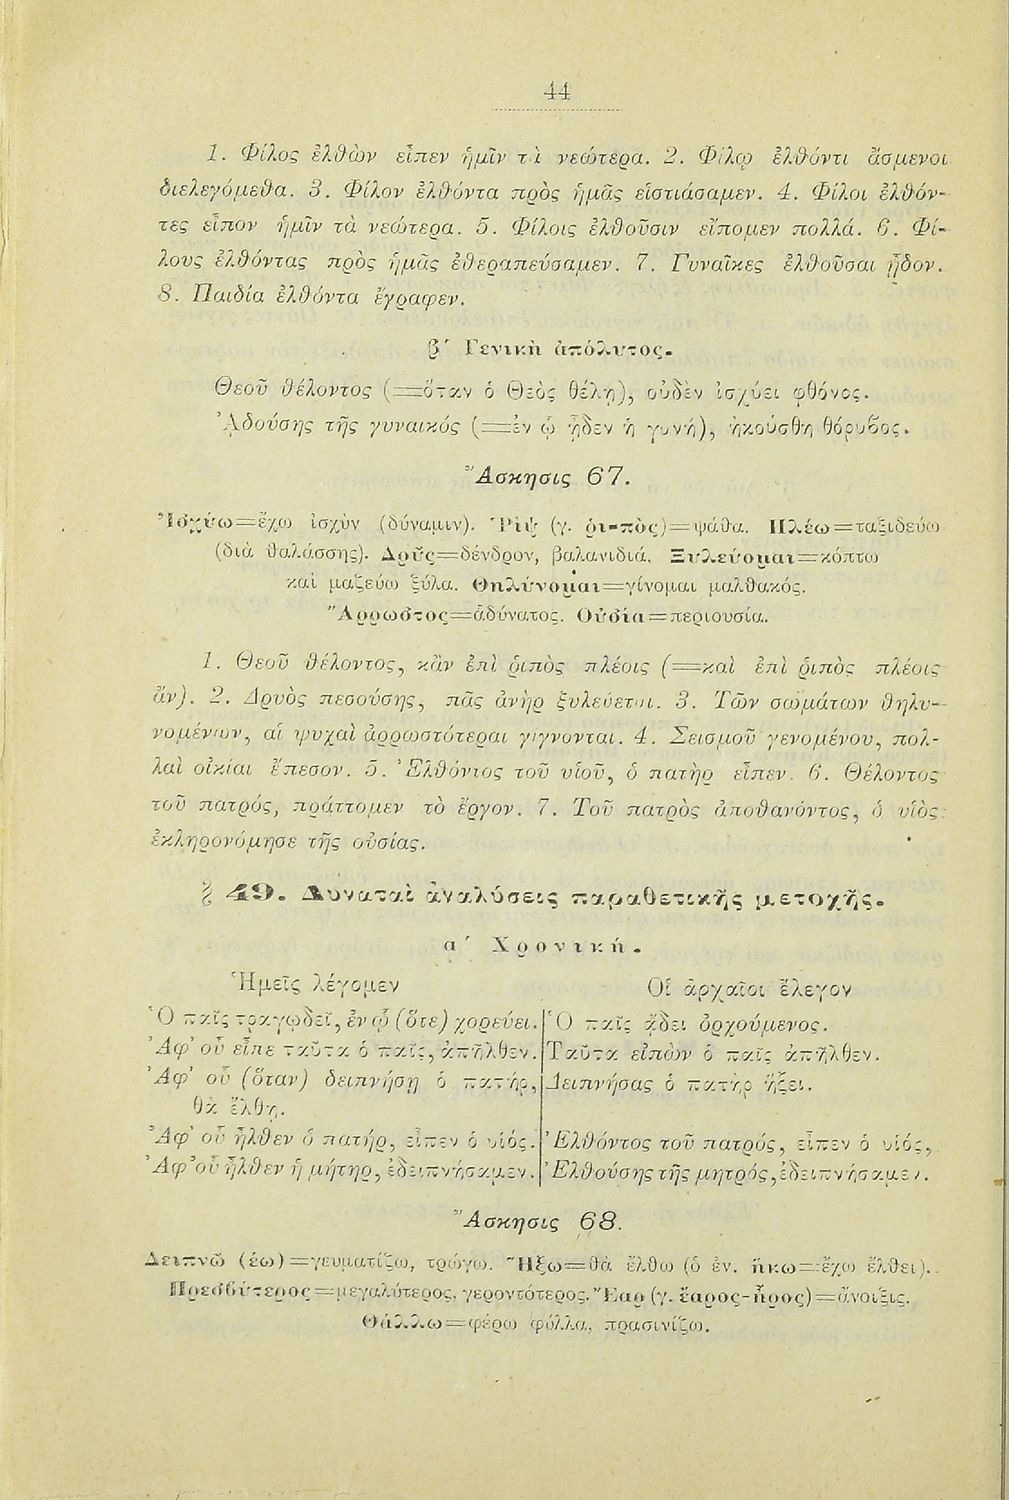 44
1. Φίλος ἐλθὼν εἶπεν ἡμῖν τὰ νεώτερα. 2. Φίλῳ ἐλθόντι ἄσμενοι
διελεγόμεθα. 3. Φίλον ἐλθόντα πρὸς ἡμᾶς εἱστιάσαμεν. 4. Φίλοι ἐλθόν-
τες εἶπον ἡμῖν τὰ νεώτερα. 5. Φίλοις ἐλθοῦσιν εἴπομεν πολλά. 6. Φί-
λους ἐλθόντας πρὸς ἡμᾶς ἐθεραπεύσαμεν. 7. Γυναῖκες ἐλθοῦσαι ᾖδον.
8. Παιδία ἐλθόντα ἔγραφεν.
β΄ Γενικὴ ἀπόλυτος.
Θεοῦ θέλοντος (=ὅταν ὁ Θεὸς θέλῃ), οὐδὲν ἰσχύει φθόνος.
Ἀδούσης τῆς γυναικός (=ἐν ᾧ ᾖδεν ἡ γυνή), ἠκούσθη θόρυβος.
Ἄσκησις 67.
Ἰσχύω=ἔχω ἰσχὺν (δύναμιν). Ῥὶψ (γ. ῥι-πὸς)=ψάθα. Πλέω=ταξιδεύω
(διὰ θαλάσσης). Δρῦς=δένδρον, βαλανιδιά. Ξυλεύομαι=κόπτω
καὶ μαζεύω ξύλα. Θηλύνομαι=γίνομαι μαλθακός.
Ἄρρωστος=ἀδύνατος. Οὐσία=περιουσία.
1. Θεοῦ θέλοντος, κἂν ἐπὶ ῥιπὸς πλέοις (=καὶ ἐπὶ ῥιπὸς πλέοις
ἄν). 2. Δρυὸς πεσούσης, πᾶς ἀνὴρ ξυλεύεται. 3. Τῶν σωμάτων θηλυ-
νομένων, αἱ ψυχαὶ ἀρρωστότεραι γίγνονται. 4. Σεισμοῦ γενομένου, πολ-
λαὶ οἰκίαι ἔπεσον. 5. Ἐλθόντος τοῦ υἱοῦ, ὁ πατὴρ εἶπεν. 6. Θέλοντος
τοῦ πατρός, πράττομεν τὸ ἔργον. 7. Τοῦ πατρὸς ἀποθανόντος, ὁ υἱὸς
ἐκληρονόμησε τῆς οὐσίας.
§ 49. Δυναταὶ ἀναλύσεις παραθετικῆς μετοχῆς.
α΄ Χρονική.
Ἡμεῖς λέγομεν Οἱ ἀρχαῖοι ἔλεγον
Ὁ παῖς τραγῳδεῖ, ἐν ᾧ (ὅτε) χορεύει. Ὁ παῖς ᾄδει ὀρχούμενος.
Ἀφ' οὗ εἶπε ταῦτα ὁ παῖς, ἀπῆλθεν. Ταῦτα εἰπὼν ὁ παῖς ἀπῆλθεν.
Ἀφ' οὗ (ὅταν) δειπνήσῃ ὁ πατήρ, Δειπνήσας ὁ πατὴρ ἥξει.
θὰ ἔλθῃ.
Ἀφ' οὗ ἦλθεν ὁ πατήρ, εἶπεν ὁ υἱός. Ἐλθόντος τοῦ πατρός, εἶπεν ὁ υἱός,
Ἀφ' οὗ ἦλθεν ἡ μήτηρ, ἐδειπνήσαμεν. Ἐλθούσης τῆς μητρός, ἐδειπνήσαμεν.
Ἄσκησις 68.
Δειπνῶ (έω)=γευματίζω, τρώγω. Ἥξω=θὰ ἔλθω (ὁ ἐν. ἥκω=ἔχω ἔλθει).
Πρεσβύτερος=μεγαλύτερος, γεροντότερος. Ἔαρ (γ. ἔαρος-ἦρος)=ἄνοιξις.
Θάλλω=φέρω φύλλα, πρασινίζω.